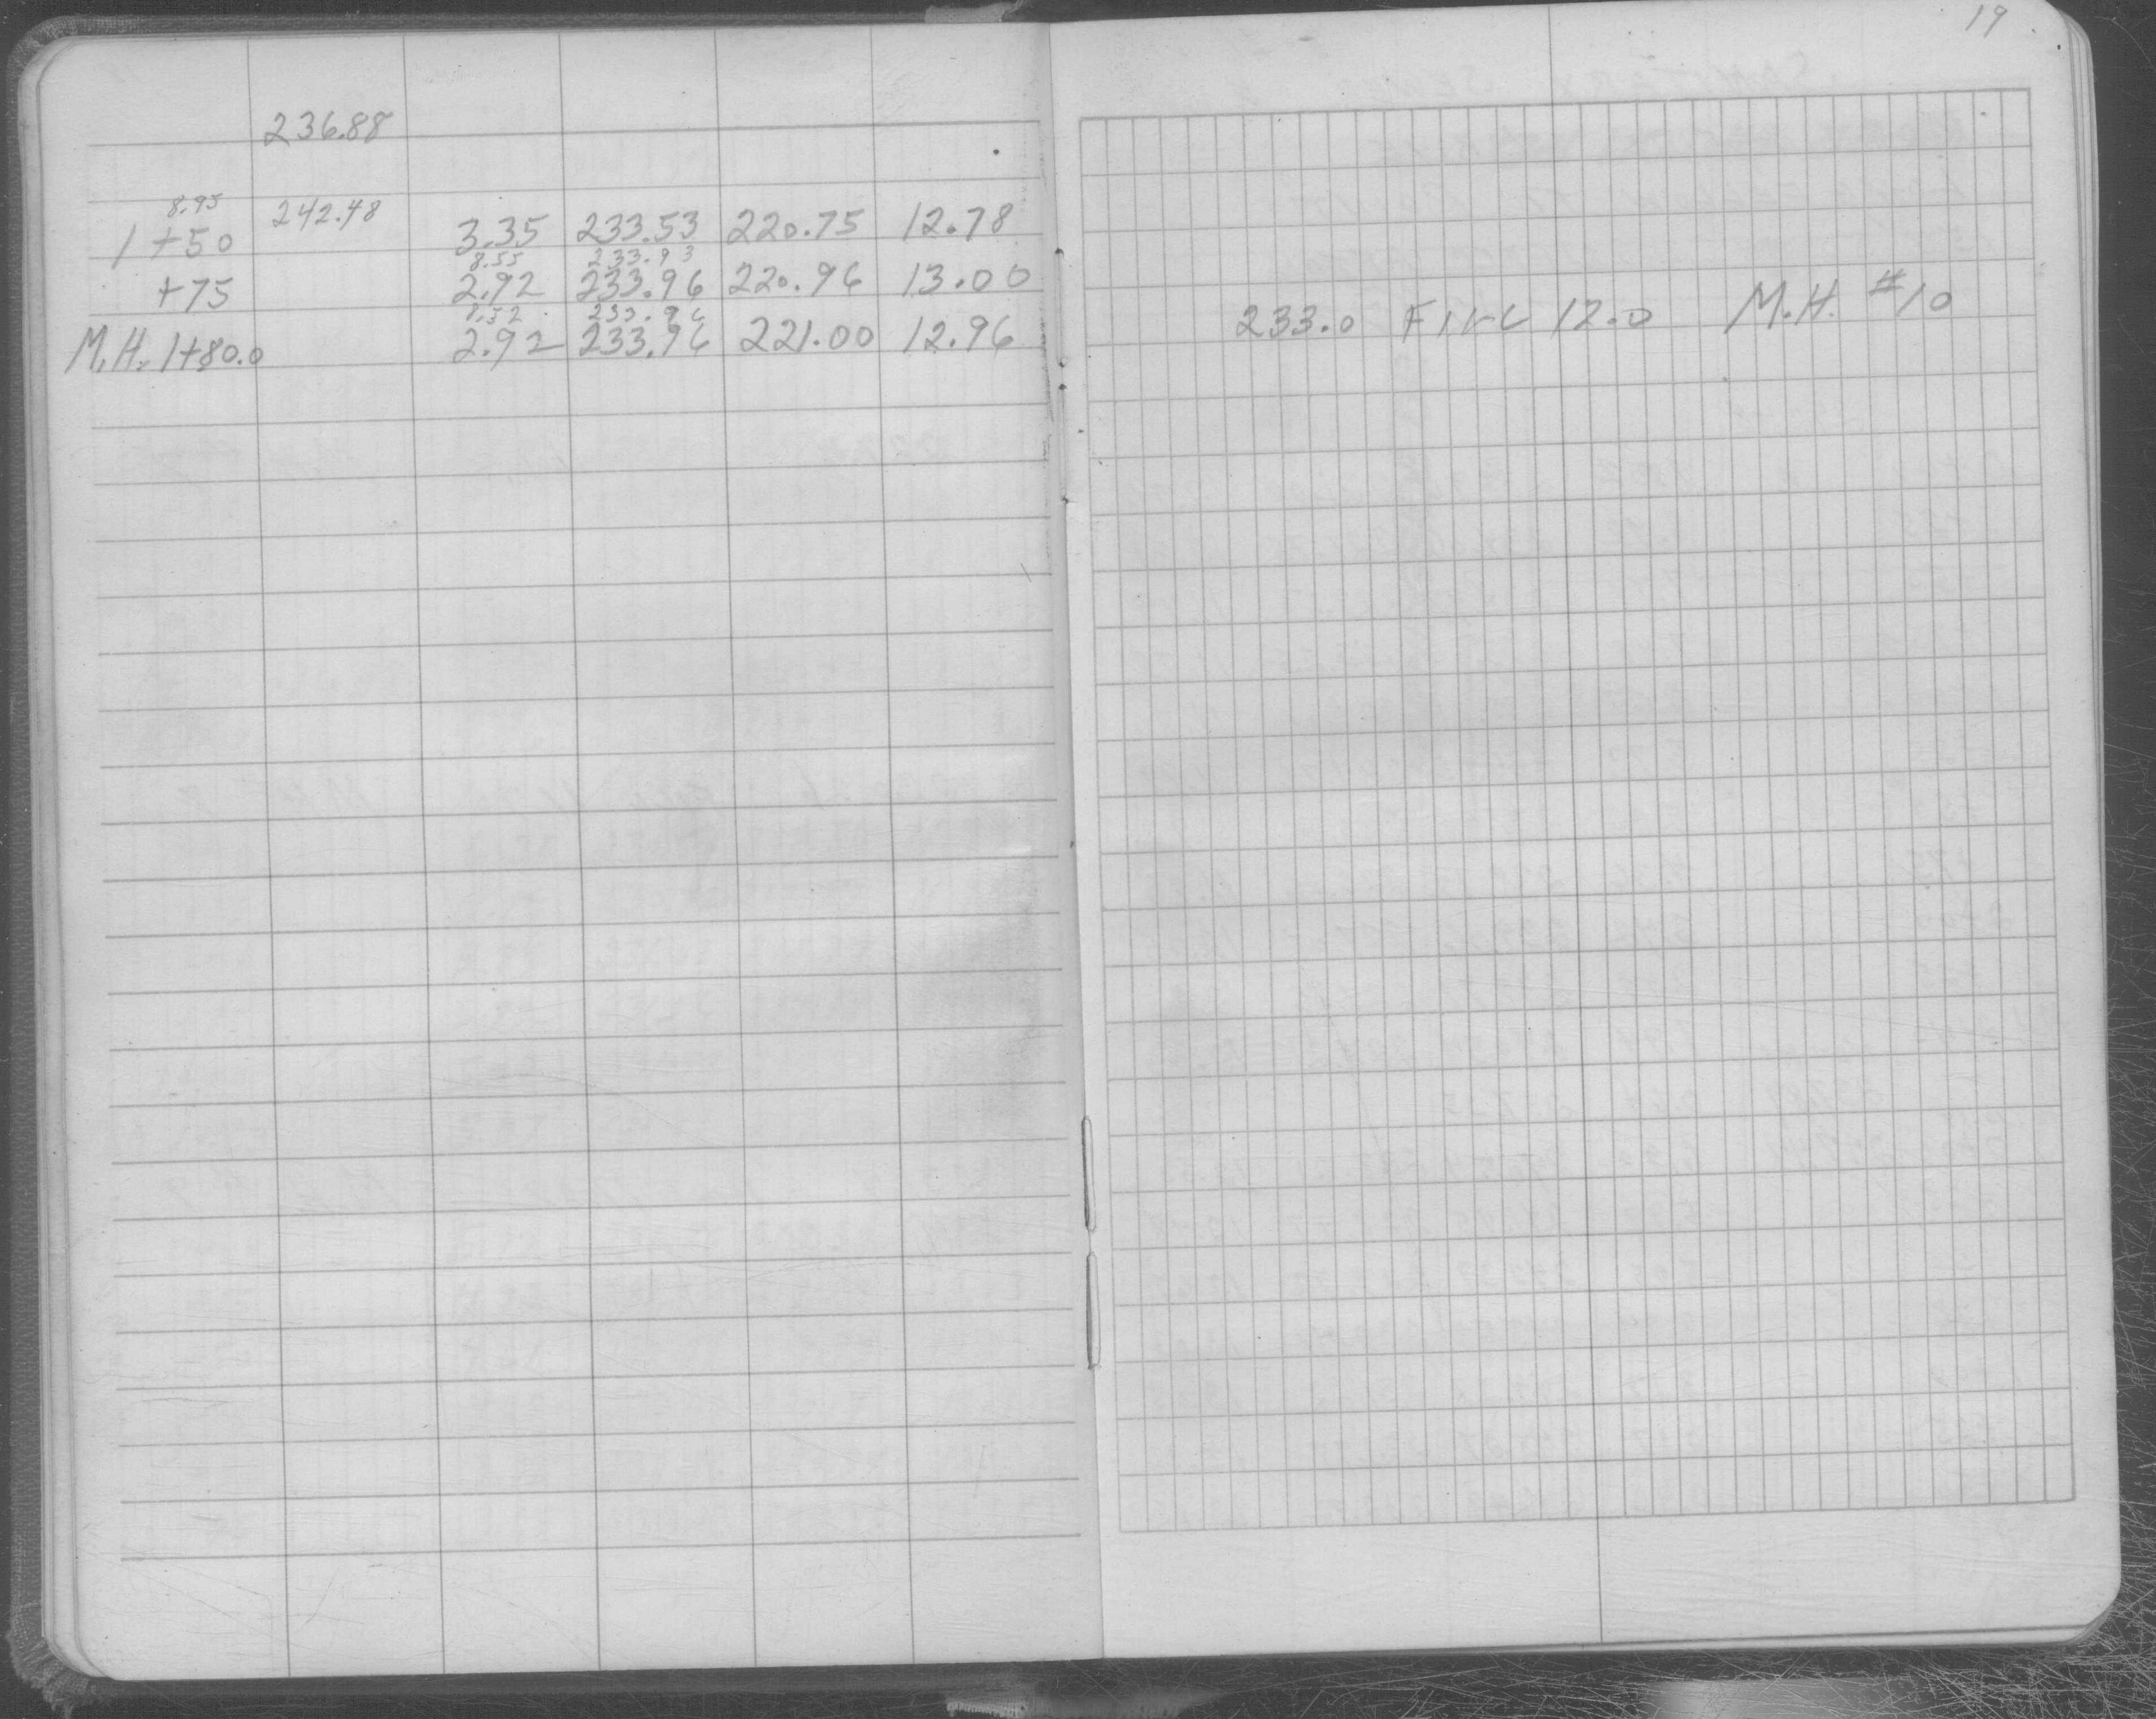 19
236.88
8.95 242.48
1+50 3.35 233.53 220.75 12.78
8.55 233.93
+75 2.92 233.96 220.96 13.00
8.52 233.96
M.H. 1+80.0 2.92 233.96 221.00 12.96
233.0 FILL 12.0 M.H. #10